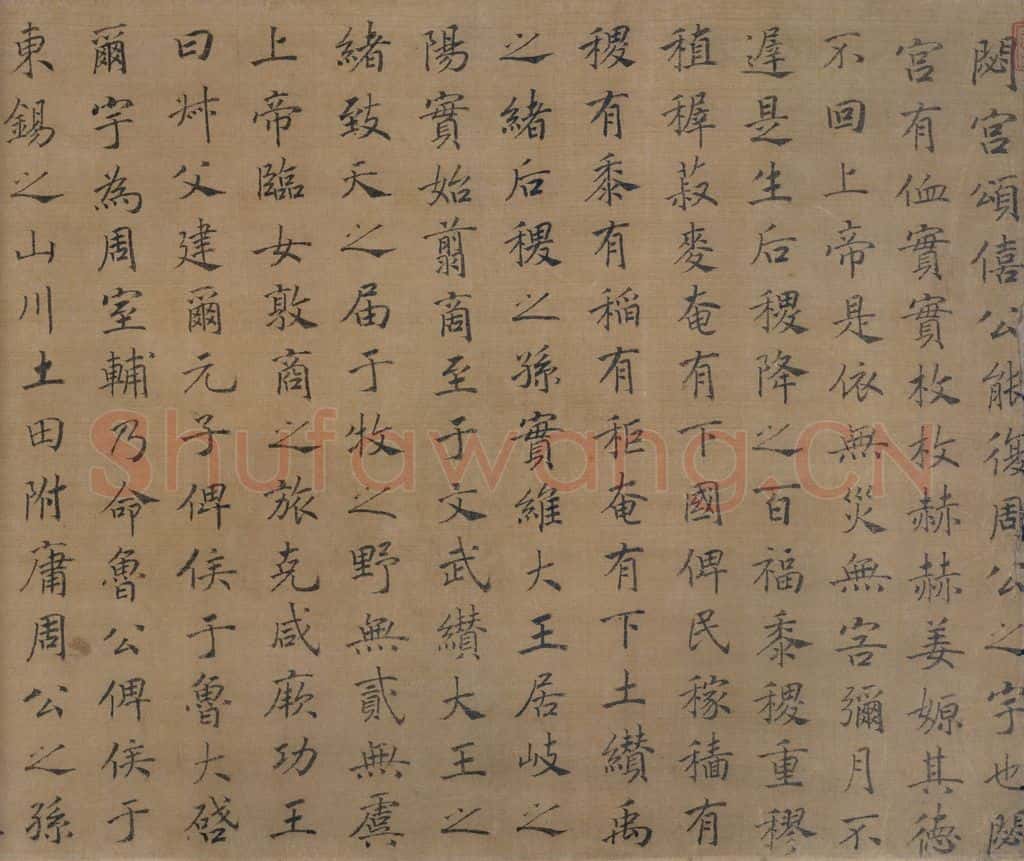 閟宮頌僖公能復周公之宇也閟
宮有侐實實枚枚赫赫姜嫄其德
不回上帝是依無災無害彌月不
遲是生后稷降之百福黍稷重穋
稙穉菽麥奄有下國俾民稼穡有
稷有黍有稻有秬奄有下土纘禹
之緒后稷之孫實維大王居岐之
陽實始翦商至于文武纘大王之
緒致天之届于牧之野無貳無虞
上帝臨女敦商之旅克咸厥功王
曰叔父建爾元子俾侯于魯大啓
爾宇為周室輔乃命魯公俾侯于
東錫之山川土田附庸周公之孫
Shufawang.CN